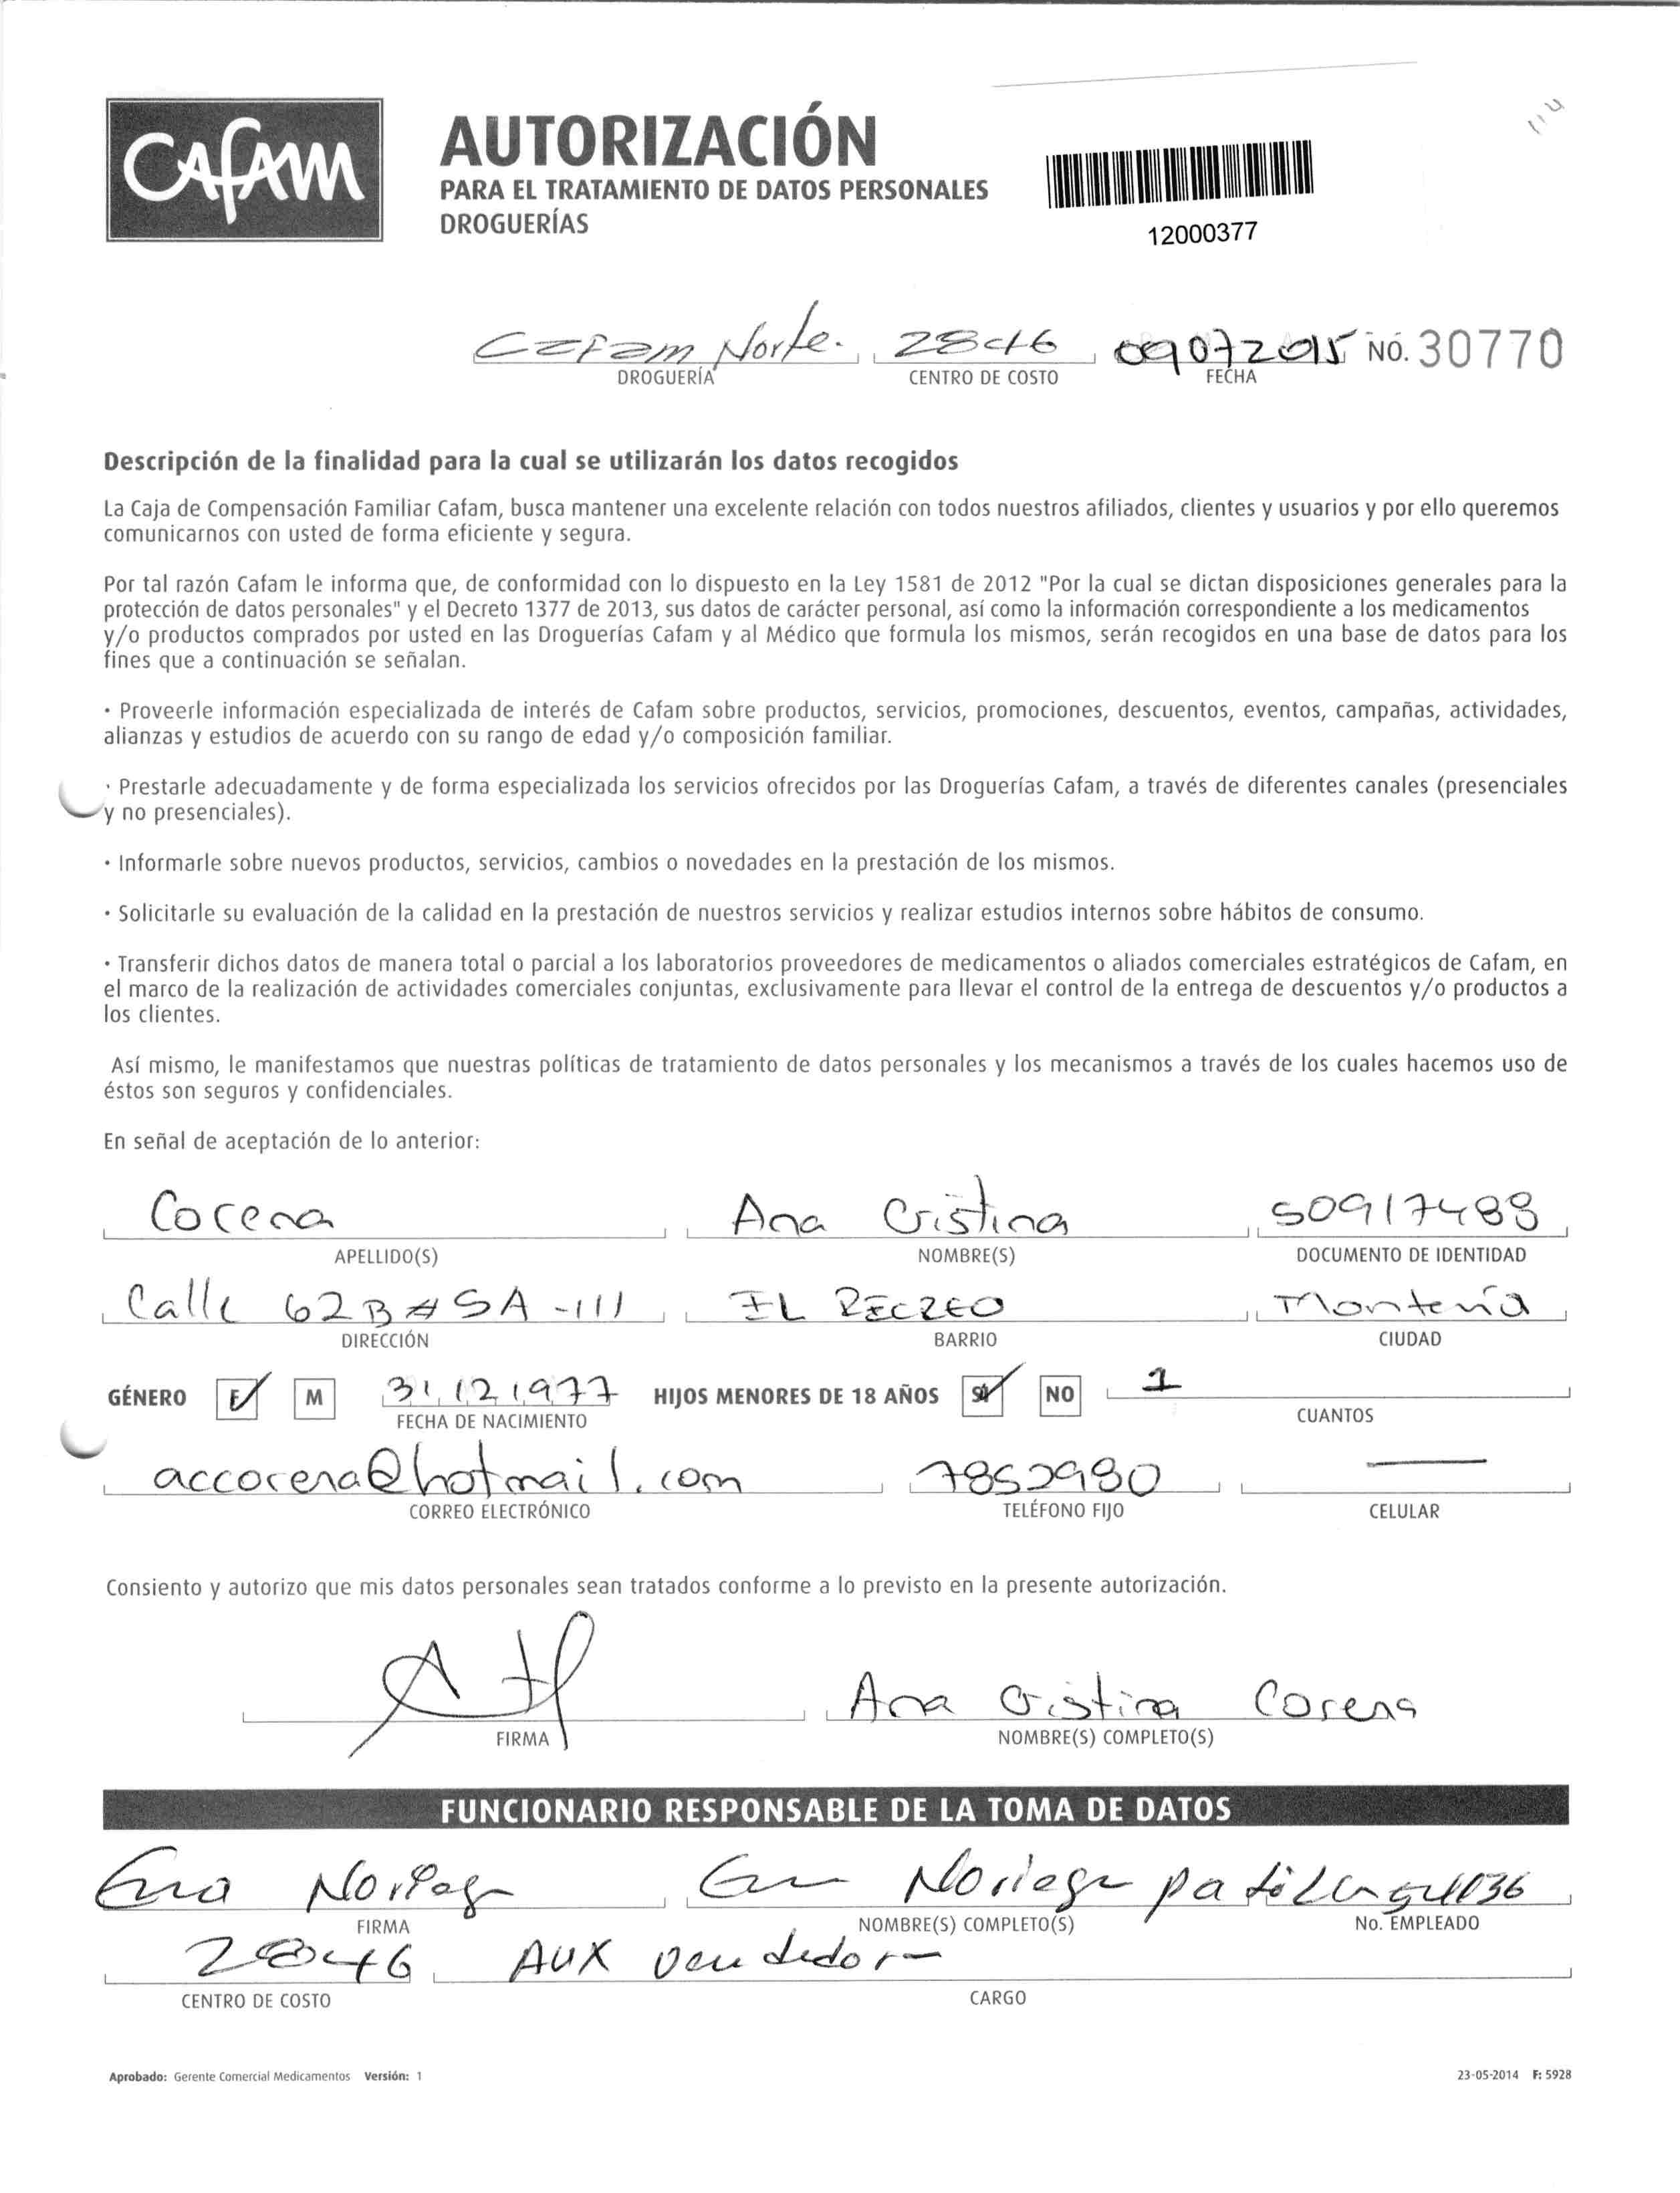 CAFAM
AUTORIZACIÓN
PARA EL TRATAMIENTO DE DATOS PERSONALES
DROGUERÍAS
12000377
Cafam Norte. 2846 09072015 NO. 30770
DROGUERÍA CENTRO DE COSTO FECHA
Descripción de la finalidad para la cual se utilizarán los datos recogidos
La Caja de Compensación Familiar Cafam, busca mantener una excelente relación con todos nuestros afiliados, clientes y usuarios y por ello queremos
comunicarnos con usted de forma eficiente y segura.
Por tal razón Cafam le informa que, de conformidad con lo dispuesto en la Ley 1581 de 2012 "Por la cual se dictan disposiciones generales para la
protección de datos personales" y el Decreto 1377 de 2013, sus datos de carácter personal, así como la información correspondiente a los medicamentos
y/o productos comprados por usted en las Droguerías Cafam y al Médico que formula los mismos, serán recogidos en una base de datos para los
fines que a continuación se señalan.
• Proveerle información especializada de interés de Cafam sobre productos, servicios, promociones, descuentos, eventos, campañas, actividades,
alianzas y estudios de acuerdo con su rango de edad y/o composición familiar.
• Prestarle adecuadamente y de forma especializada los servicios ofrecidos por las Droguerías Cafam, a través de diferentes canales (presenciales
y no presenciales).
• Informarle sobre nuevos productos, servicios, cambios o novedades en la prestación de los mismos.
• Solicitarle su evaluación de la calidad en la prestación de nuestros servicios y realizar estudios internos sobre hábitos de consumo.
• Transferir dichos datos de manera total o parcial a los laboratorios proveedores de medicamentos o aliados comerciales estratégicos de Cafam, en
el marco de la realización de actividades comerciales conjuntas, exclusivamente para llevar el control de la entrega de descuentos y/o productos a
los clientes.
Así mismo, le manifestamos que nuestras políticas de tratamiento de datos personales y los mecanismos a través de los cuales hacemos uso de
éstos son seguros y confidenciales.
En señal de aceptación de lo anterior:
Corena Ana Cristina 50917488
APELLIDO(S) NOMBRE(S) DOCUMENTO DE IDENTIDAD
Calle 62B # 5A -111 EL RECREO Montería
DIRECCIÓN BARRIO CIUDAD
GÉNERO F M 31 12 1977 HIJOS MENORES DE 18 AÑOS SI NO 1
FECHA DE NACIMIENTO CUANTOS
accorena@hotmail.com 7852980
CORREO ELECTRÓNICO TELÉFONO FIJO CELULAR
Consiento y autorizo que mis datos personales sean tratados conforme a lo previsto en la presente autorización.
Ana Cristina Corena
FIRMA NOMBRE(S) COMPLETO(S)
FUNCIONARIO RESPONSABLE DE LA TOMA DE DATOS
Noriega Noriega padilla
FIRMA NOMBRE(S) COMPLETO(S) No. EMPLEADO
2846 AUX vendedor
CENTRO DE COSTO CARGO
Aprobado: Gerente Comercial Medicamentos Versión: 1 23-05-2014 F: 5928